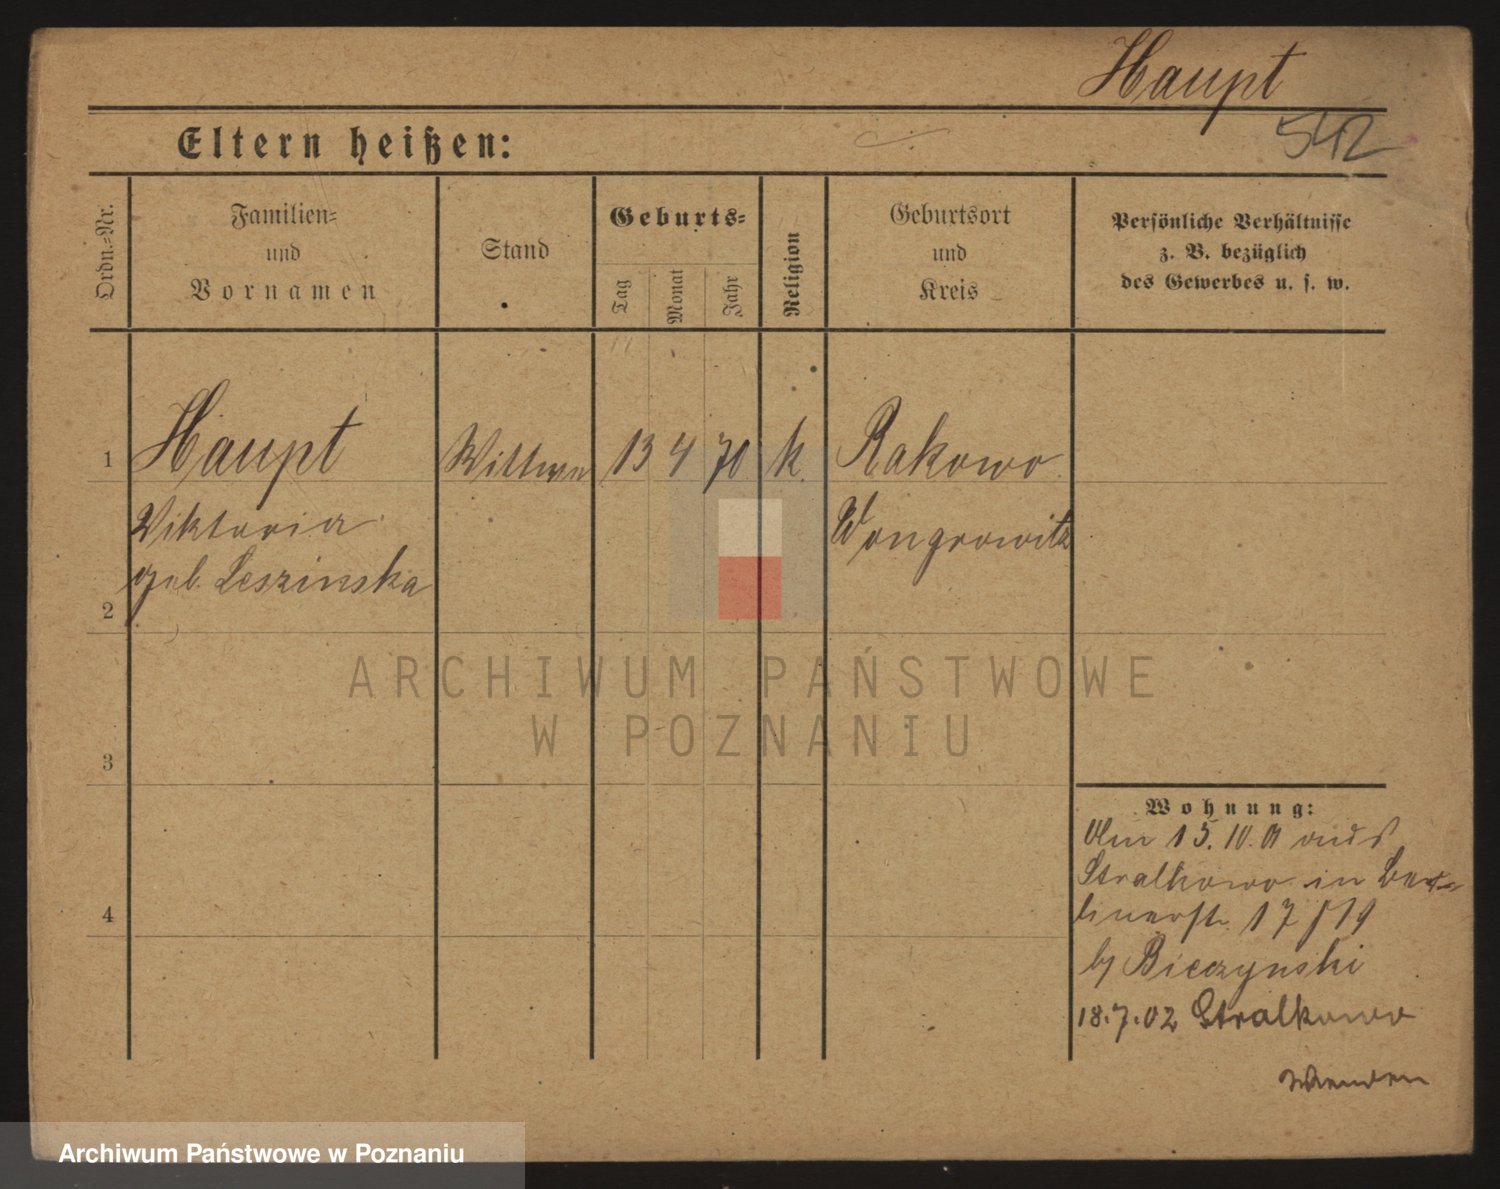 Haupt
542
Eltern heißen:
Ordn.-Nr.
Familien-
und
Vornamen
Stand
Geburts-
Tag
Monat
Jahr
Religion
Geburtsort
und
Kreis
Persönliche Verhältnisse
z. B. bezüglich
des Gewerbes u. s. w.
1 Haupt Wittwe 13 4 70 k. Rakowo
Viktoria Wongrowitz
geb. Leszinska
2
3
4
Wohnung:
Am 15. 10. 01 aus
Stralkowo in Ber-
linerstr. 17/19
b/ Bieczynski
18.7.02 Stralkowo
Wenden
ARCHIWUM PAŃSTWOWE
W POZNANIU
Archiwum Państwowe w Poznaniu